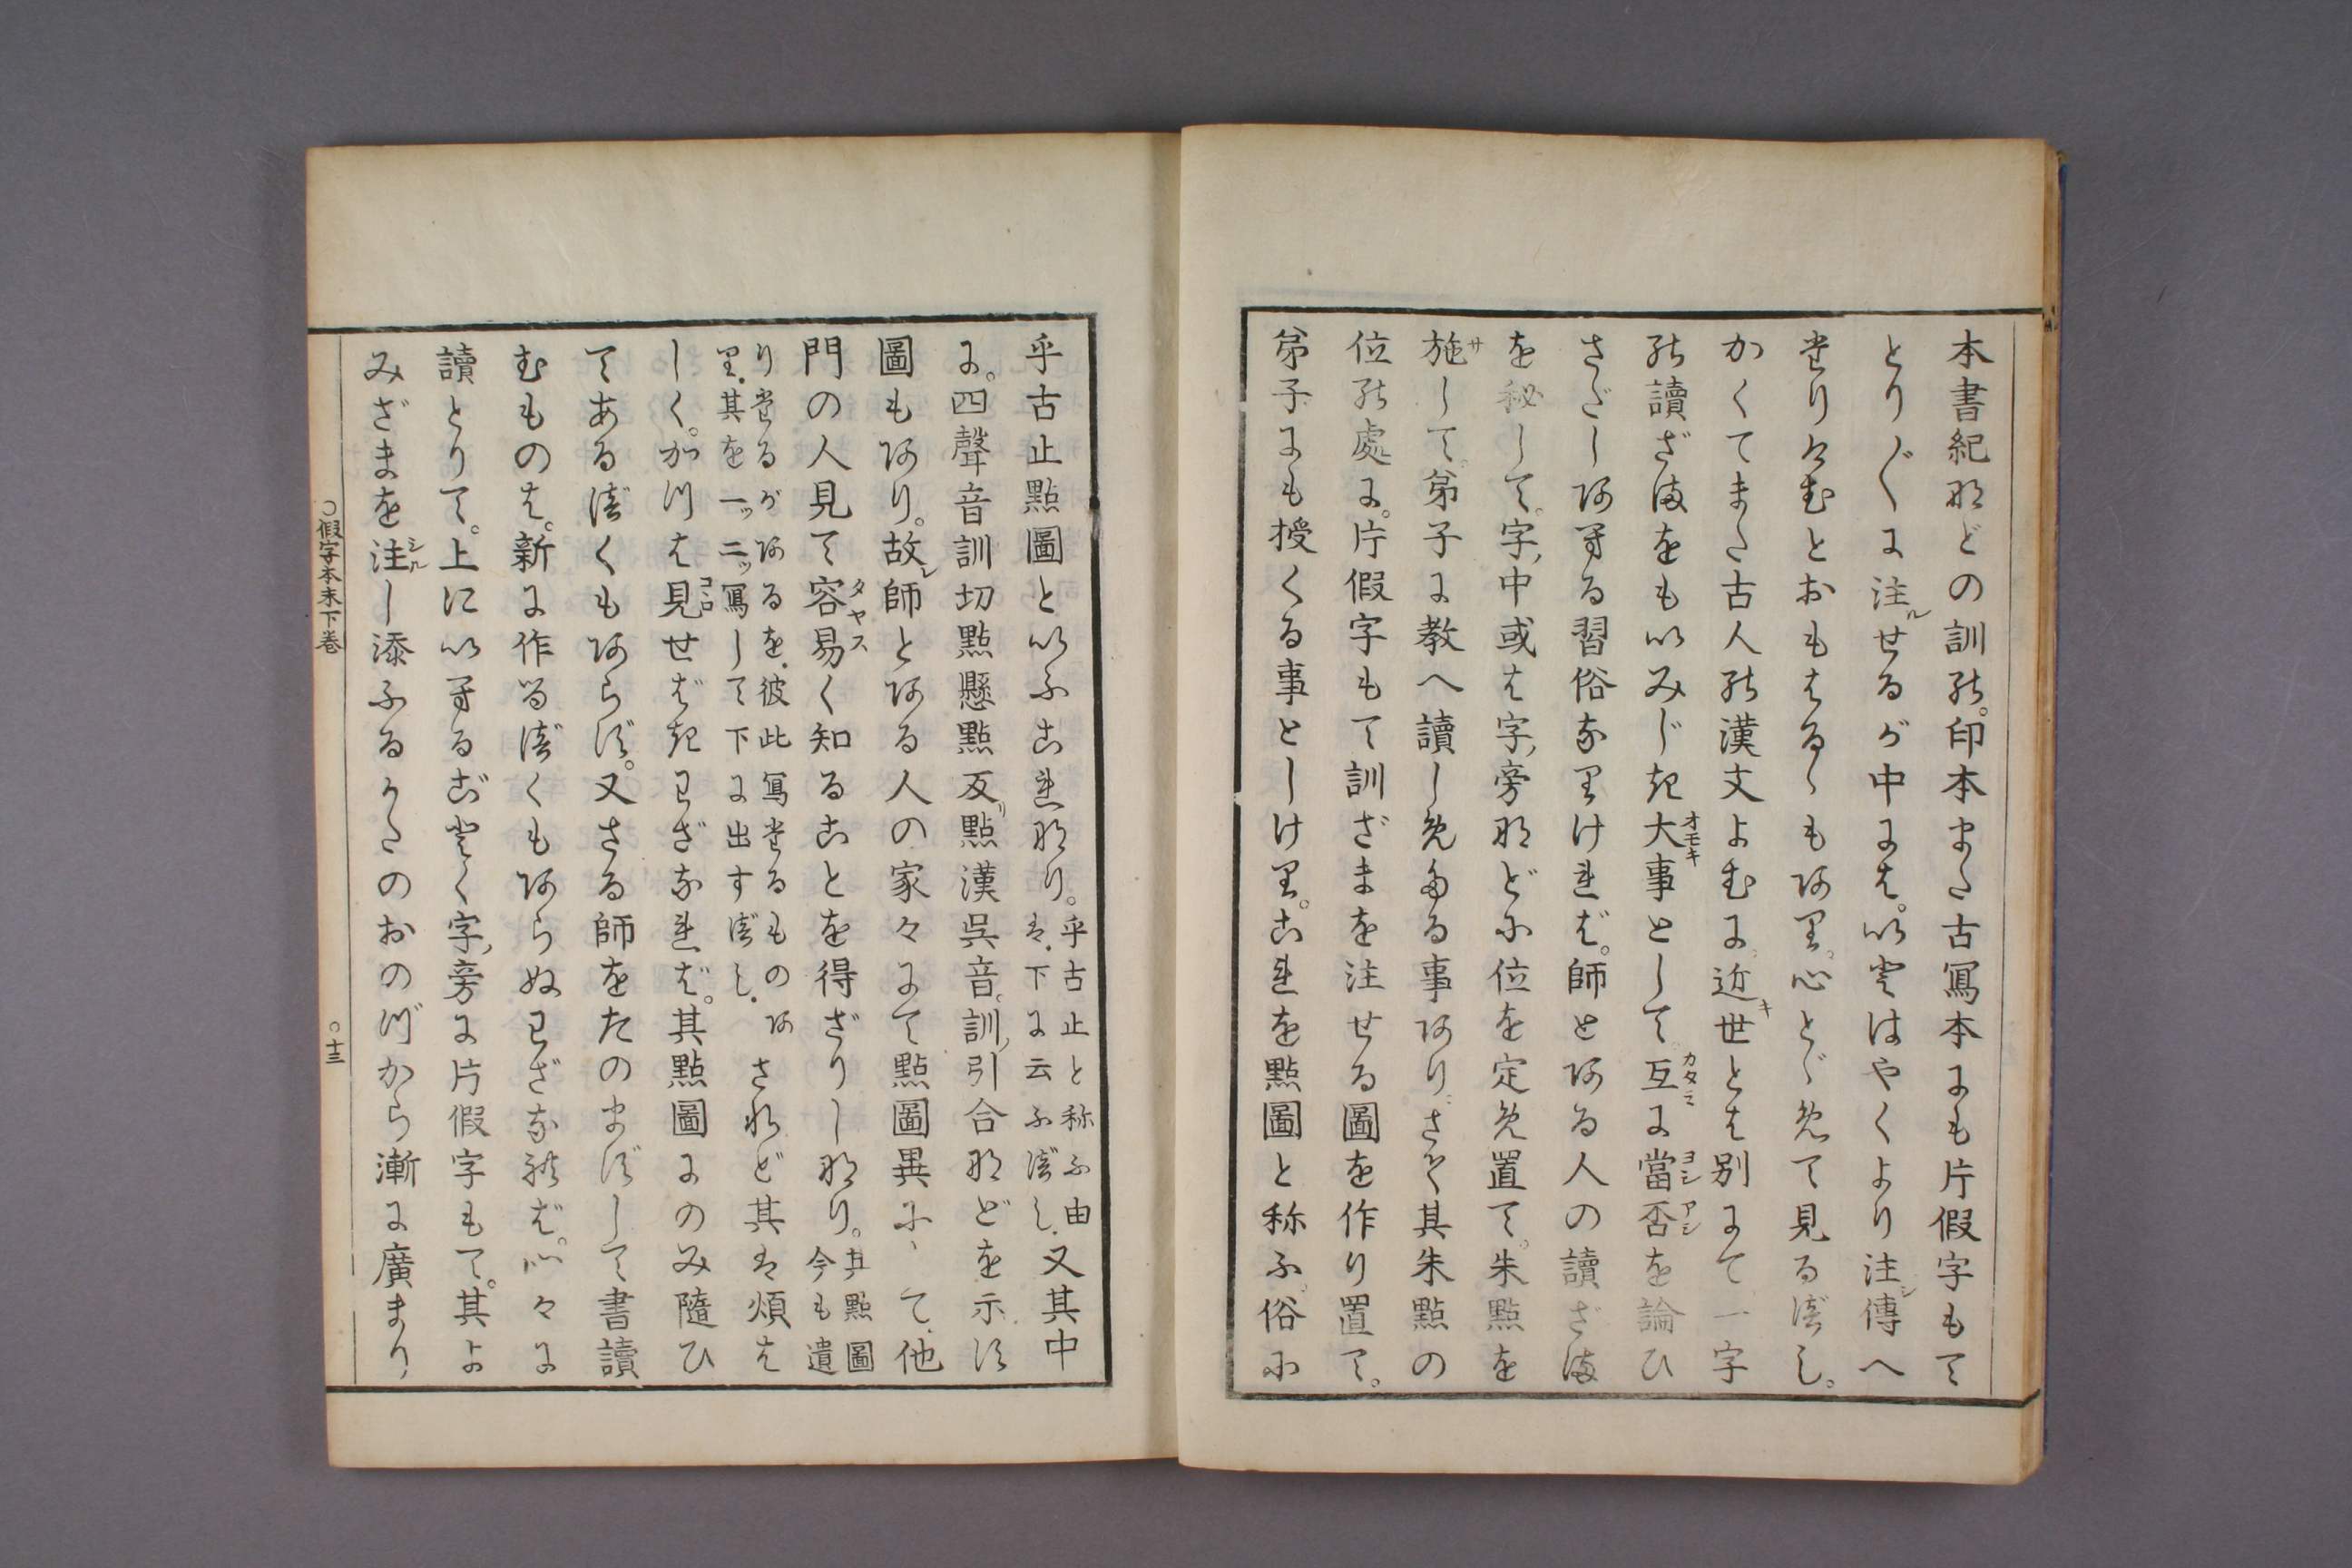 本書紀などの訓の。印本また古寫本にも片假字もて
とり〴〵に注ルせるが中には。いとはやくより注シ傳へ
たりけむとおもはるゝもあり。心とゞめて見るべし。
かくてまた古人の漢文よむに。近キ世とは別にて一字
の讀ざまをもいみじき大事オモキとして互カタミに當否ヨシアシを論ひ
さだしあへる習俗なりければ。師とある人の讀ざま
を秘して。字ノ中或は字ノ旁などに位を定め置て。朱點を
施サして。弟子に教へ讀しめたる事あり。さて其朱點の
位の處に。片假字もて訓ざまを注せる圖を作り置て。
弟子にも授くる事としけり。これを點圖と称ふ。俗に
乎古止點圖といふこれなり。乎古止と称ふ由は。下に云ふべし。又其中
に。四聲音訓切點懸點反リ點漢呉音。訓ノ引合などを示す
圖もあり。故レ師とある人の家々にて點圖異にて。他
門の人見て容易タヤスく知ることを得ざりしなり。其點圖今も遺
りたるがあるを。彼此寫たるものあり。其を一ッ二ッ寫して下に出すべし。されど其は煩は
しく。かつは見ココロせばきわざなれば。其點圖にのみ隨ひ
てあるべくもあらず。又さる師をたのまずして書讀
むものは。新に作るべくもあらぬわざなれば。心々に
讀とりて。上にいへるごとく字ノ旁に片假字もて。其よ
みざまを注シルし添ふるかたのおのづから漸に廣まり
○假字本末下巻
○十三